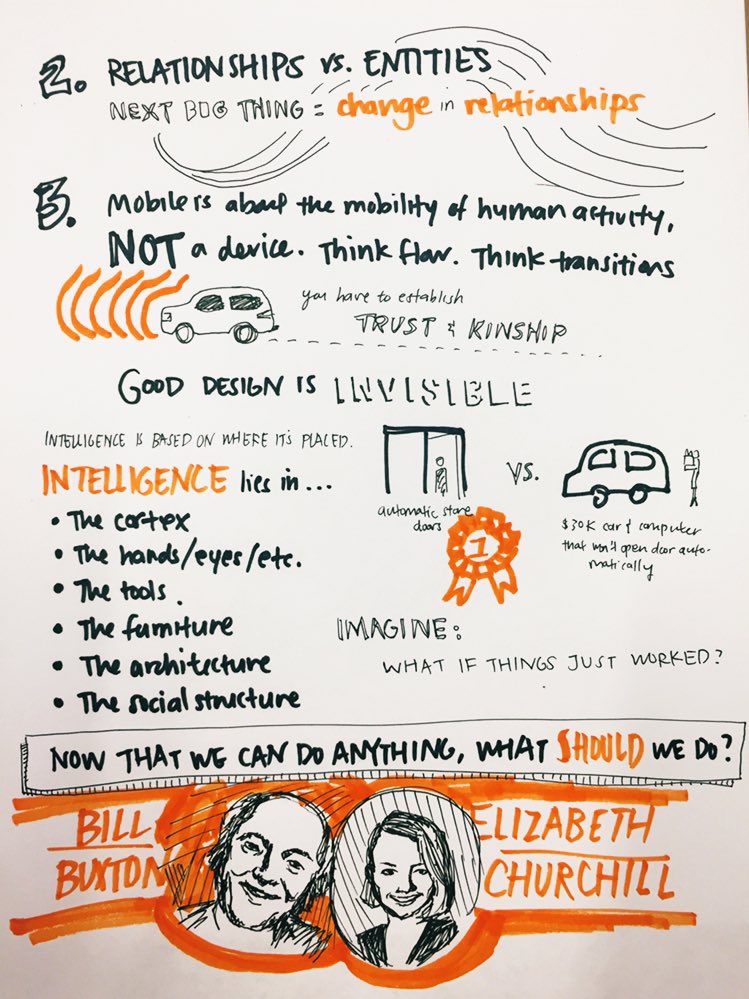 2. RELATIONSHIPS vs. ENTITIES
NEXT BIG THING = change in relationships
3. Mobile is about the mobility of human activity,
NOT a device. Think flow. Think transitions
you have to establish
TRUST & KINSHIP
GOOD DESIGN IS INVISIBLE
INTELLIGENCE IS BASED ON WHERE IT'S PLACED.
INTELLIGENCE lies in...
• The cortex
• The hands/eyes/etc.
• The tools.
• The furniture
• The architecture
• The social structure
automatic store
doors
1
VS.
$30K car & computer
that won't open door auto-
matically
IMAGINE:
WHAT IF THINGS JUST WORKED?
NOW THAT WE CAN DO ANYTHING, WHAT SHOULD WE DO?
BILL
BUXTON
ELIZABETH
CHURCHILL